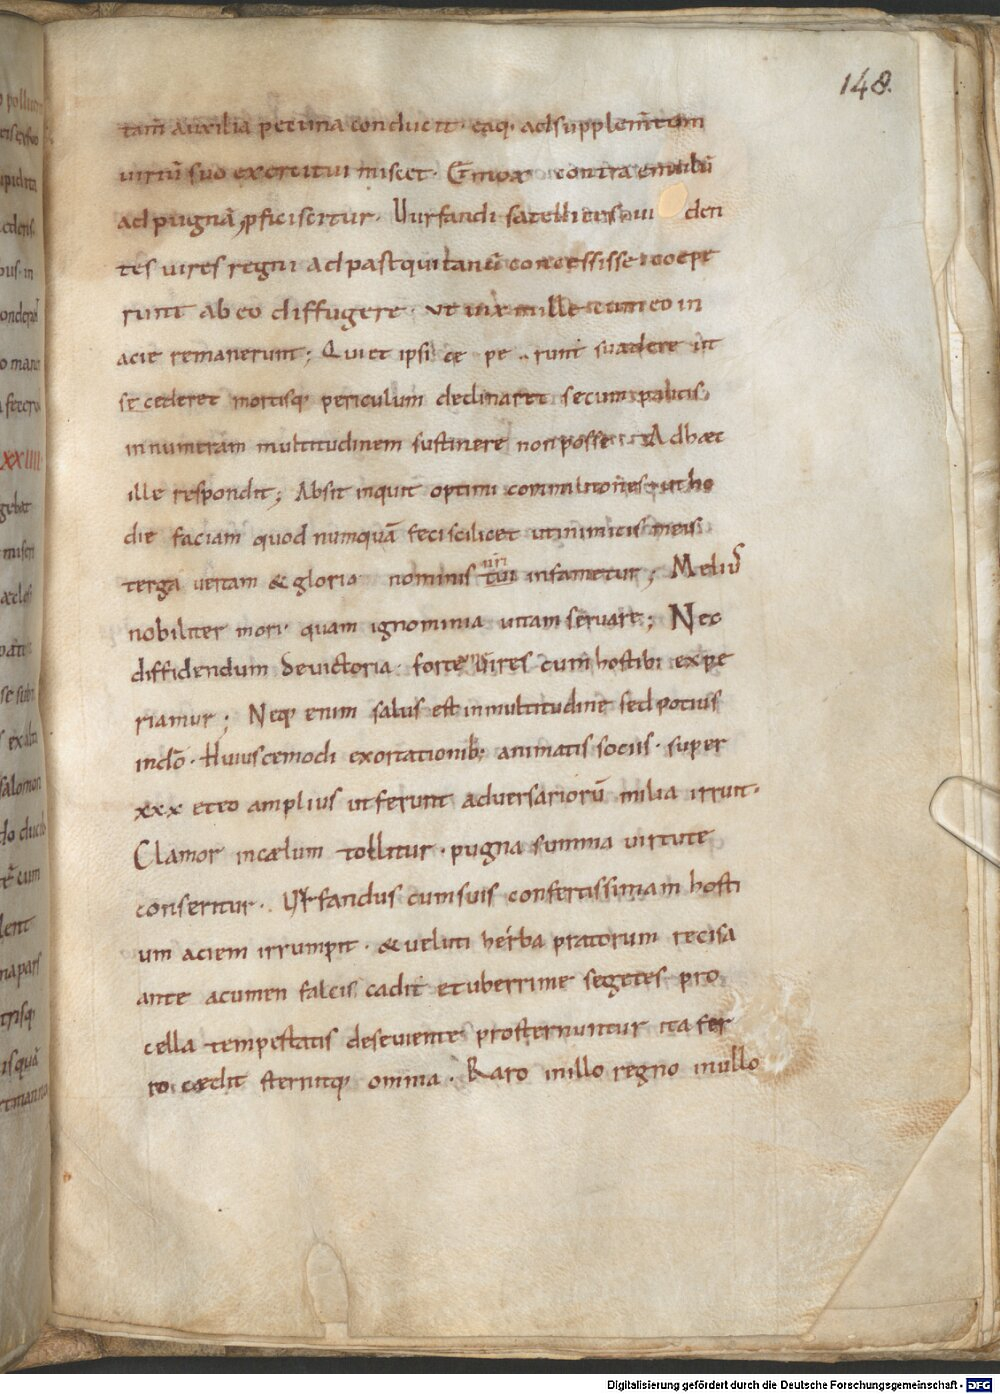 148.
tam̅ auxilia pecunia conducit. eaq. adsupplem̅tum
uirtu̅ suo exercitui miscet. Et mox contra emulu̅
ad pugna̅ ꝓficiscitur. Uurfandi satellites ui den
tes uires regni ad pastquitanu̅ concessisse coepe
runt ab eo diffugere. ut uix mille cum eo in
acie remanerunt; Qui et ipsi ce pe runt suadere ut
se cederet mortisq; periculum declinaret secum paucis
innumeram multitudinem sustinere non posse. Ad haec
ille respondit; Absit inquit optimi commilitones ut ho
die faciam quod numqua̅ feci scilicet ut inimicis meis
terga uertam & gloria nominis tui infametur; Melius
nri
nobiliter mori quam ignominia uitam seruare; Nec
diffidendum de uictoria. forte uires cum hostibus expe
riamur; Neq; enim salus est in multitudine sed potius
in do̅. Huiuscemodi exortationib; animatis sociis. super
xxx et eo amplius ut ferunt aduersarioru̅ milia irruit.
Clamor in cælum tollitur. pugna summa uirtute
conseritur. Urfandus cum suis confertissimam hosti
um aciem irrumpit. & ueluti herba pratorum recisa
ante acumen falcis cadit et uberrime segetes pro
cella tempestatis deseuiente prosternuntur ita fer
ro cædit sternitq; omnia. Raro in illo regno in ullo
XXIIII
Digitalisierung gefördert durch die Deutsche Forschungsgemeinschaft - DFG